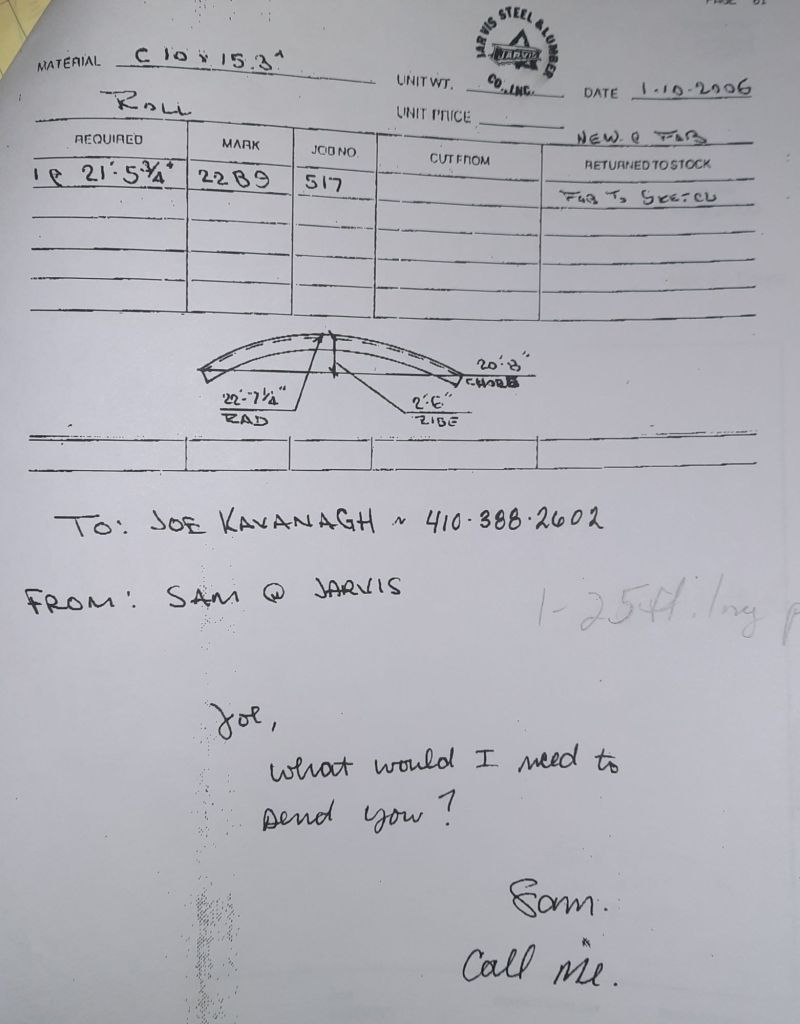 PAGE 01
JARVIS STEEL & LUMBER
JARVIS
CO., INC.
MATERIAL C 10 x 15.3#
UNIT WT.
DATE 1-10-2006
ROLL
UNIT PRICE
NEW @ FAB
REQUIRED MARK JOB NO. CUT FROM RETURNED TO STOCK
1 @ 21'-5 3/4" 22B9 517
FAB TO SKETCH
20'-8"
CHORD
22'-7 1/4"
RAD
2'-6"
RISE
TO: JOE KAVANAGH ~ 410-388-2602
FROM: SAM @ JARVIS
1-25ft. long
Joe,
What would I need to
send you?
Sam.
Call me.